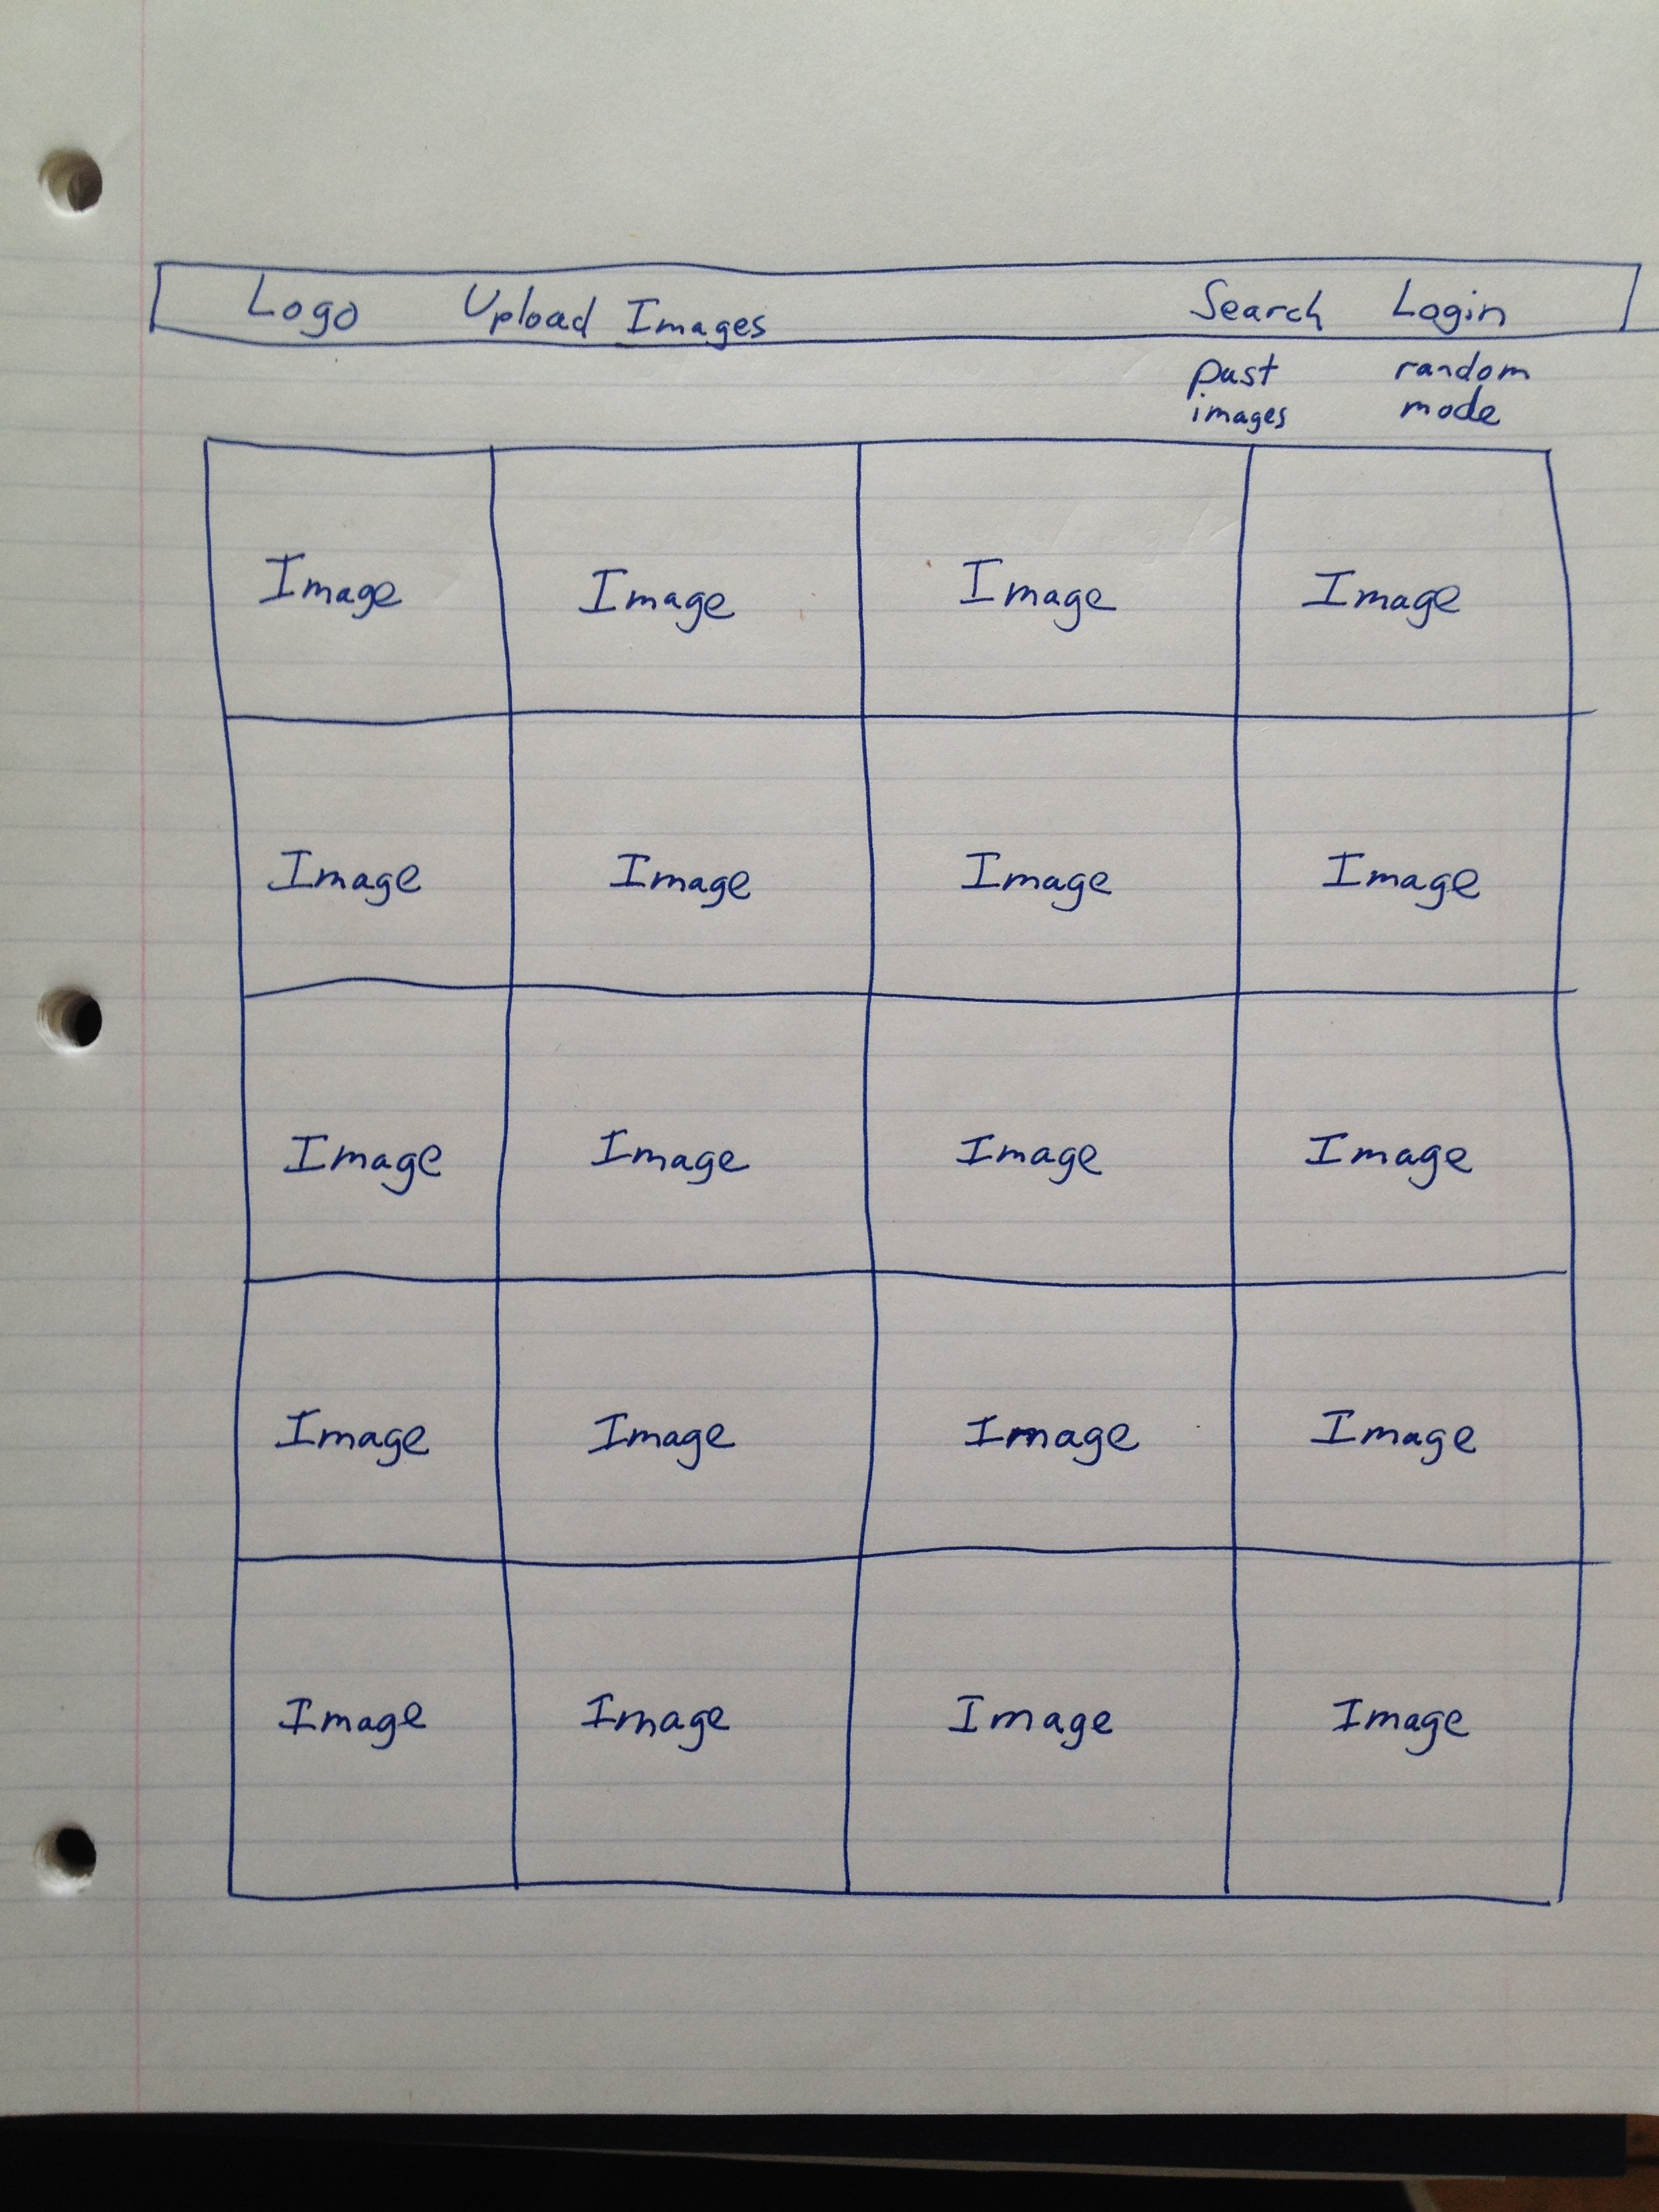 Logo Upload Images Search Login
past random
images mode
Image Image Image Image
Image Image Image Image
Image Image Image Image
Image Image Image Image
Image Image Image Image